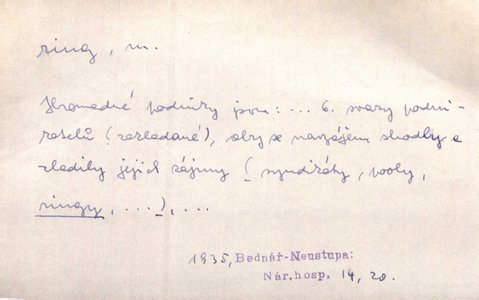 ring, m.
Hromadné podniky jsou: ... 6. svazy podni-
katelů (            ), aby se navzájem shodly a
sladily jejich zájmy (syndikáty, pooly,
ringy, ...), ...
1935, Bednář-Neustupa:
Nár. hosp. 14, 20.